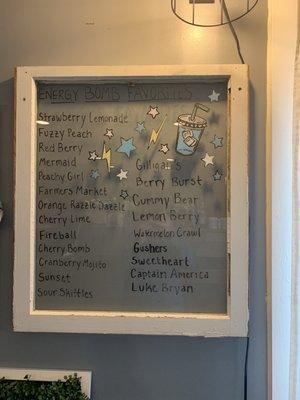 ENERGY BOMB FAVORITES
Strawberry Lemonade
Fuzzy Peach
Red Berry
Mermaid
Peachy Girl
Farmers Market
Orange Razzle Dazzle
Cherry Lime
Fireball
Cherry Bomb
Cranberry Mojito
Sunset
Sour Skittles
Gilligan's
Berry Burst
Gummy Bear
Lemon Berry
Watermelon Crawl
Gushers
Sweetheart
Captain America
Luke Bryan